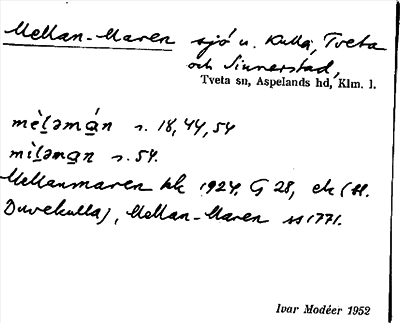 Mellan-Maren sjö u. Kulla, Tveta
och Sinnerstad,
Tveta sn, Aspelands hd, Klm. l.
mèl̠əmán s. 18, 44, 54
mìl̠əman s. 54.
Mellanmaren hk 1924. G 28, ek (H.
Duvekulla), Mellan-Maren ss 1771.
Ivar Modéer 1952